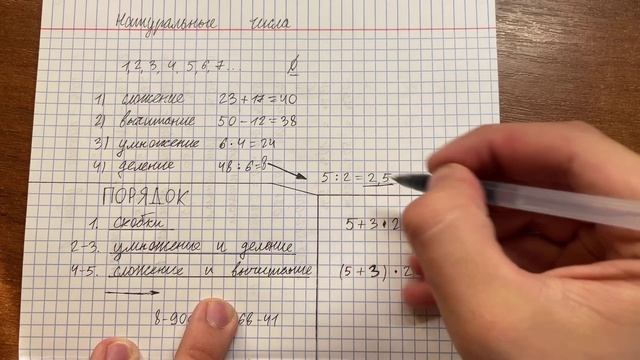 Натуральные числа
1, 2, 3, 4, 5, 6, 7 ...
1) сложение 23 + 17 = 40
2) вычитание 50 - 12 = 38
3) умножение 6 · 4 = 24
4) деление 48 : 6 = 8
5 : 2 = 2,5
ПОРЯДОК
1. скобки
5 + 3 · 2
2-3. умножение и деление
4-5. сложение и вычитание
(5 + 3) · 2
8-90 68-41